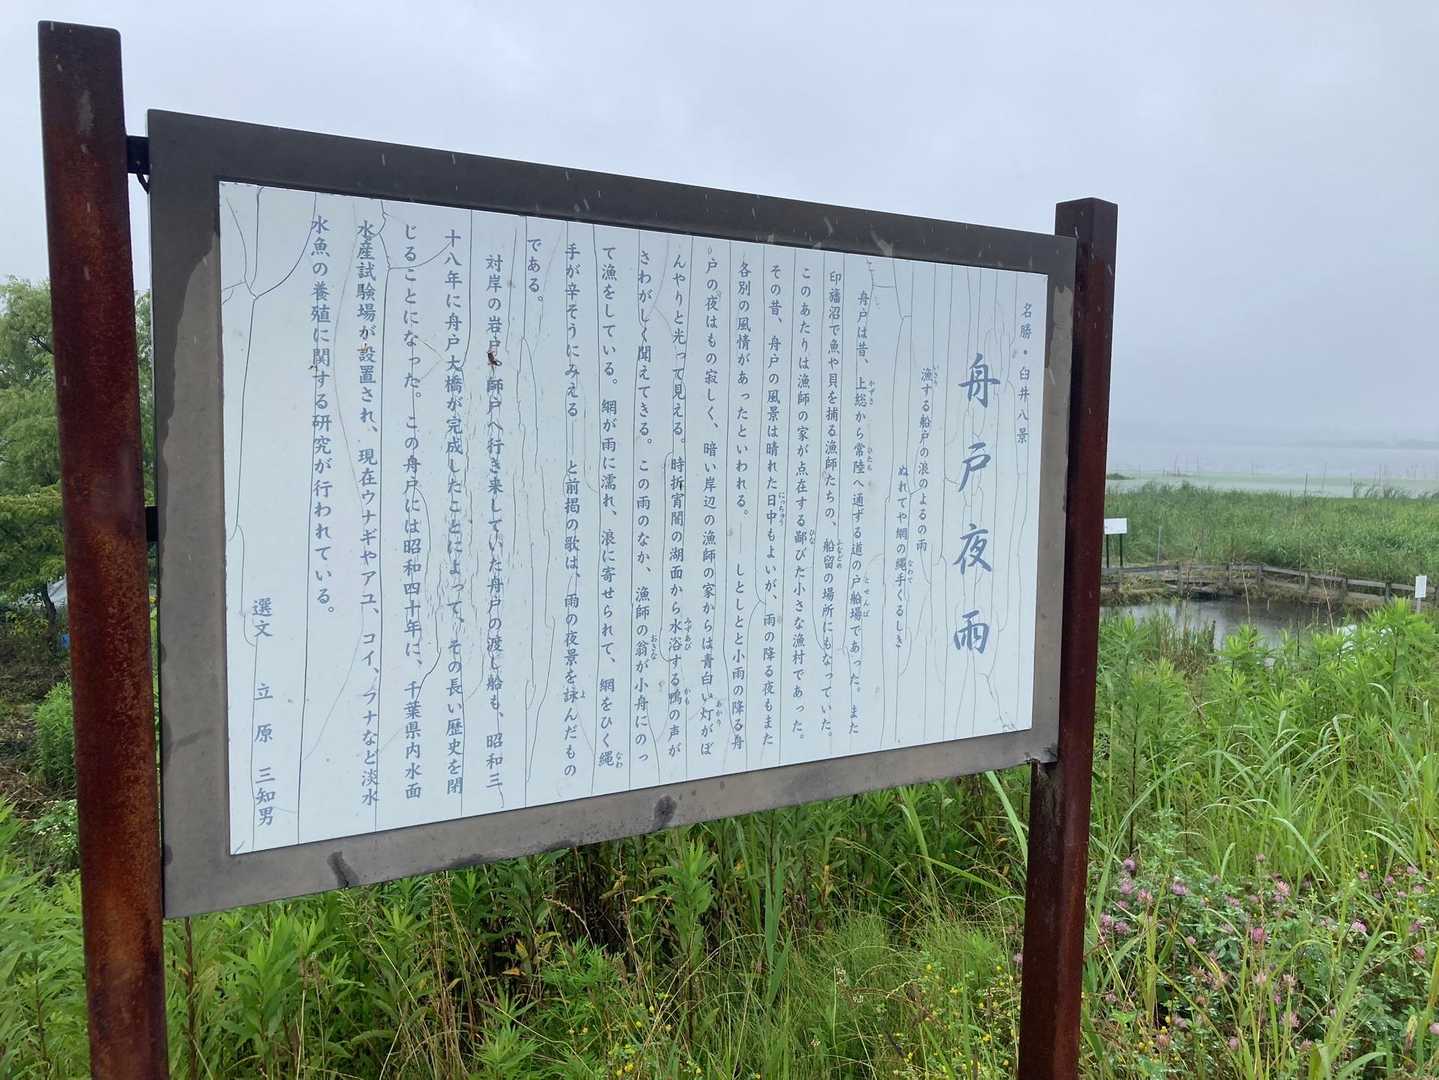 名勝・臼井八景
舟戸夜雨
漁する船戸の浪のよるの雨
ぬれてや網の縄手くるしき
舟戸は昔、上総から常陸へ通ずる道の戸船場であった。また
印旛沼で魚や貝を捕る漁師たちの、船留の場所にもなっていた。
このあたりは漁師の家が点在する鄙びた小さな漁村であった。
その昔、舟戸の風景は晴れた日中もよいが、雨の降る夜もまた
各別の風情があったといわれる。――しとしとと小雨の降る舟
戸の夜はもの寂しく、暗い岸辺の漁師の家からは青白い灯がぼ
んやりと光って見える。時折宵闇の湖面から水浴する鴨の声が
さわがしく聞えてきる。この雨のなか、漁師の翁が小舟にのっ
て漁をしている。網が雨に濡れ、浪に寄せられて、網をひく縄
手が辛そうにみえる――と前掲の歌は、雨の夜景を詠んだもの
である。
対岸の岩戸、師戸へ行き来していた舟戸の渡し船も、昭和三
十八年に舟戸大橋が完成したことによって、その長い歴史を閉
じることになった。この舟戸には昭和四十年に、千葉県内水面
水産試験場が設置され、現在ウナギやアユ、コイ、フナなど淡水
水魚の養殖に関する研究が行われている。
選文 立原 三知男